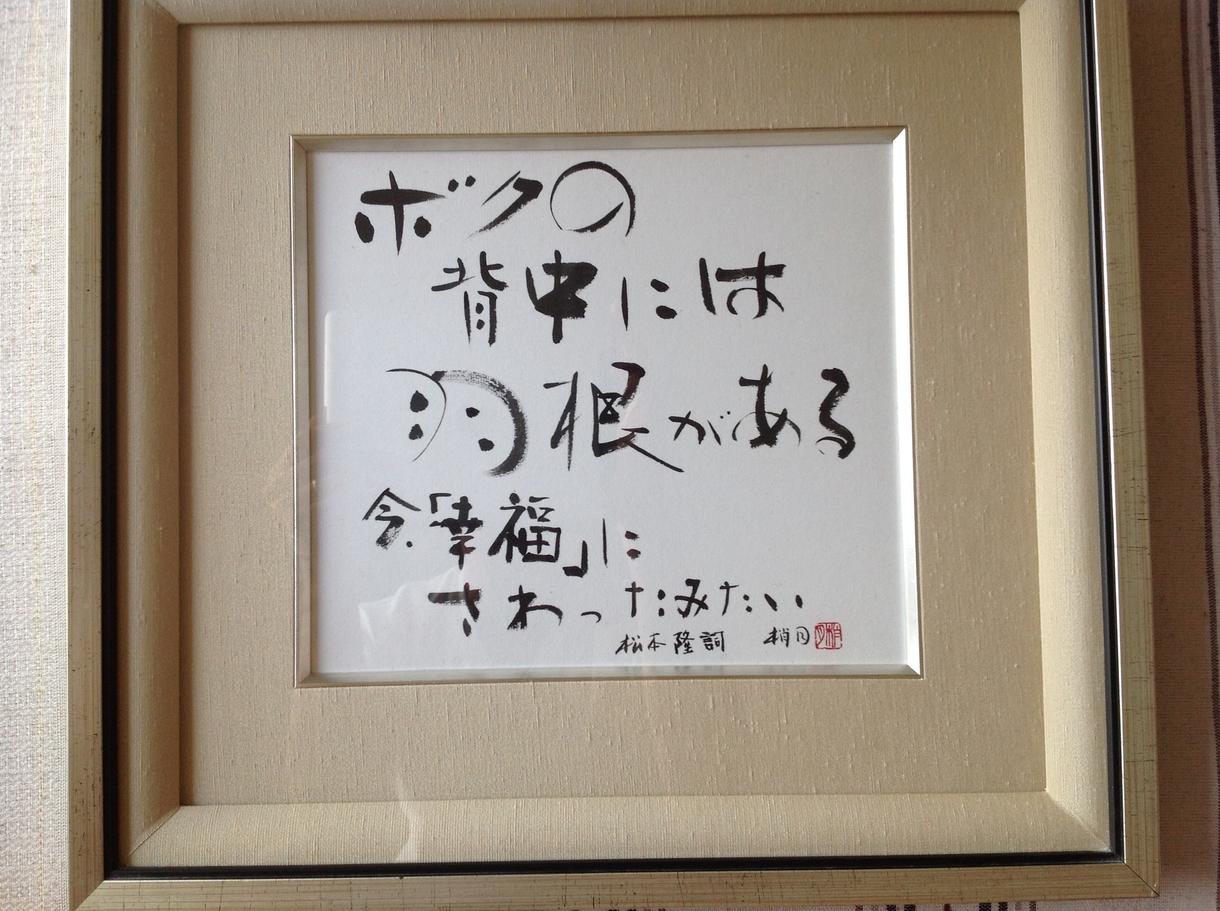 ボクの
背中には
羽根がある
今、「幸福」に
さわったみたい
松本隆詞 梢月